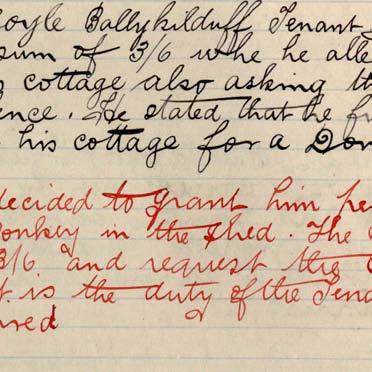 oyle Ballykilduff Tenant
sum of 3/6 whe he alle
cottage also asking th
ence. He stated that he f
his cottage for a Don
decided to grant him pe
onkey in the shed. The
3/6 and request the
t is the duty of the Tena
red